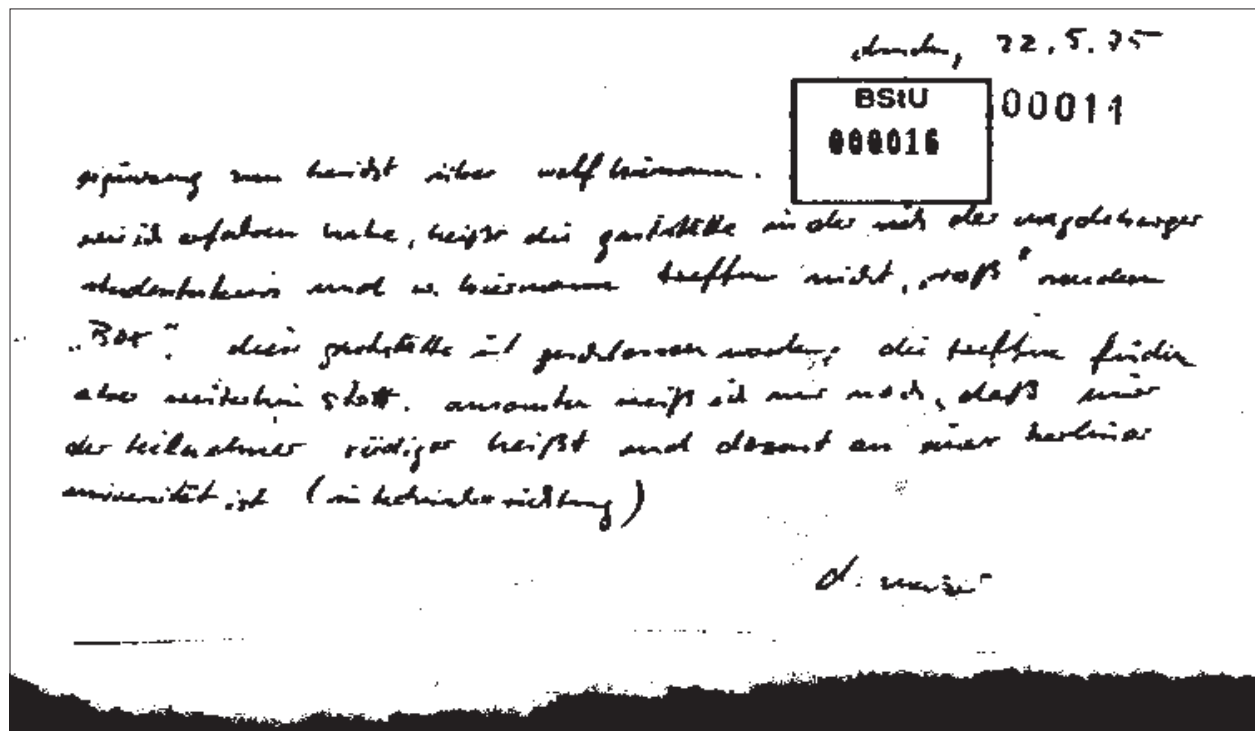 dresden, 22.5.75
BStU
000016
00011
ergänzung zum bericht über wolf biermann.
wie ich erfahren habe, heißt die gaststätte in der sich der magdeburger
studentenkreis und w. biermann treffen nicht „roß" sondern
diese gaststätte ist geschlossen worden, die treffen finden
aber weiterhin statt. ansonsten weiß ich nur noch, daß einer
der teilnehmer rüdiger heißt und dozent an einer berliner
universität ist (in technischer richtung)
d.